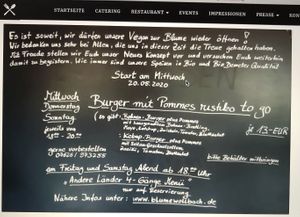 STARTSEITE CATERING RESTAURANT EVENTS IMPRESSIONEN PRESSE KON
Es ist soweit, wir dürfen unsere Vegan zur Blume wieder öffnen!
Wir bedanken uns sehr bei Allen, die uns in dieser Zeit die Treue gehalten haben.
Mit Freude stellen wir Euch unser Neues Konzept vor und versuchen Euch weiterhin
damit zu begeistern. Wie immer sind unsere Speisen in Bio und Bio Demeter Qualität
Start am Mittwoch
20.05.2020
Mittwoch
Donnerstag
Samstag
jeweils von
- 20:00
Burger mit Pommes rustiko to go
(es gibt: Bohnen-Burger plus Pommes
mit
Mayo, Ketchup, Zwiebeln, Tomaten, Blattsalat
Kebap-Burger plus Pommes
mit
Zwiebeln, Tomaten, Blattsalat
je 13-EUR
gerne vorbestellen
07621/
bitte Behälter mitbringen
am Freitag und Samstag Abend ab 18 Uhr
"Andere Länder 4-Gänge Menü"
nur auf Reservierung
Nähere Infos unter: www.blumewollbach.de